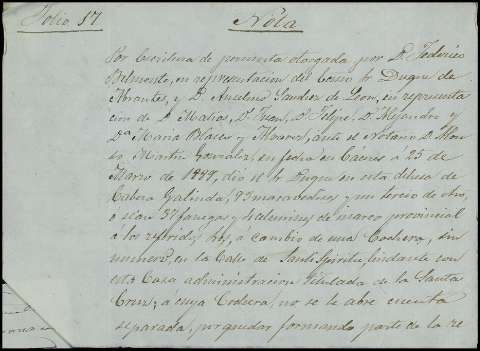 Folio 17. Nota
Por Escritura de permuta otorgada por D. Federico
Belmonte, en representacion del Excmo Sr Duque de
Abrantes, y D. Anselmo Sanchez de Leon, en representa
cion de D. Matias, D. Juan, D. Felipe, D. Alejandro y
Dª Maria Blazco y Alvarez, ante el Notario D.
Martin Gonzalez, su fecha en Cáceres a 25 de
Marzo de 1889, dio el Sr Duque en esta dehesa de
Cabeza Galinda, 93 maravedises y un tercio de otro,
o sean 37 fanegas y 4 celemines de marco provincial
a los Sres, á cambio de una Cochera, sin
numero, en la Calle de Santi Spiritu, lindante con
esta Casa administracion titulada de la Santa
Cruz; á cuya Cochera, no se le abre cuenta
separada, por quedar formando parte de la re